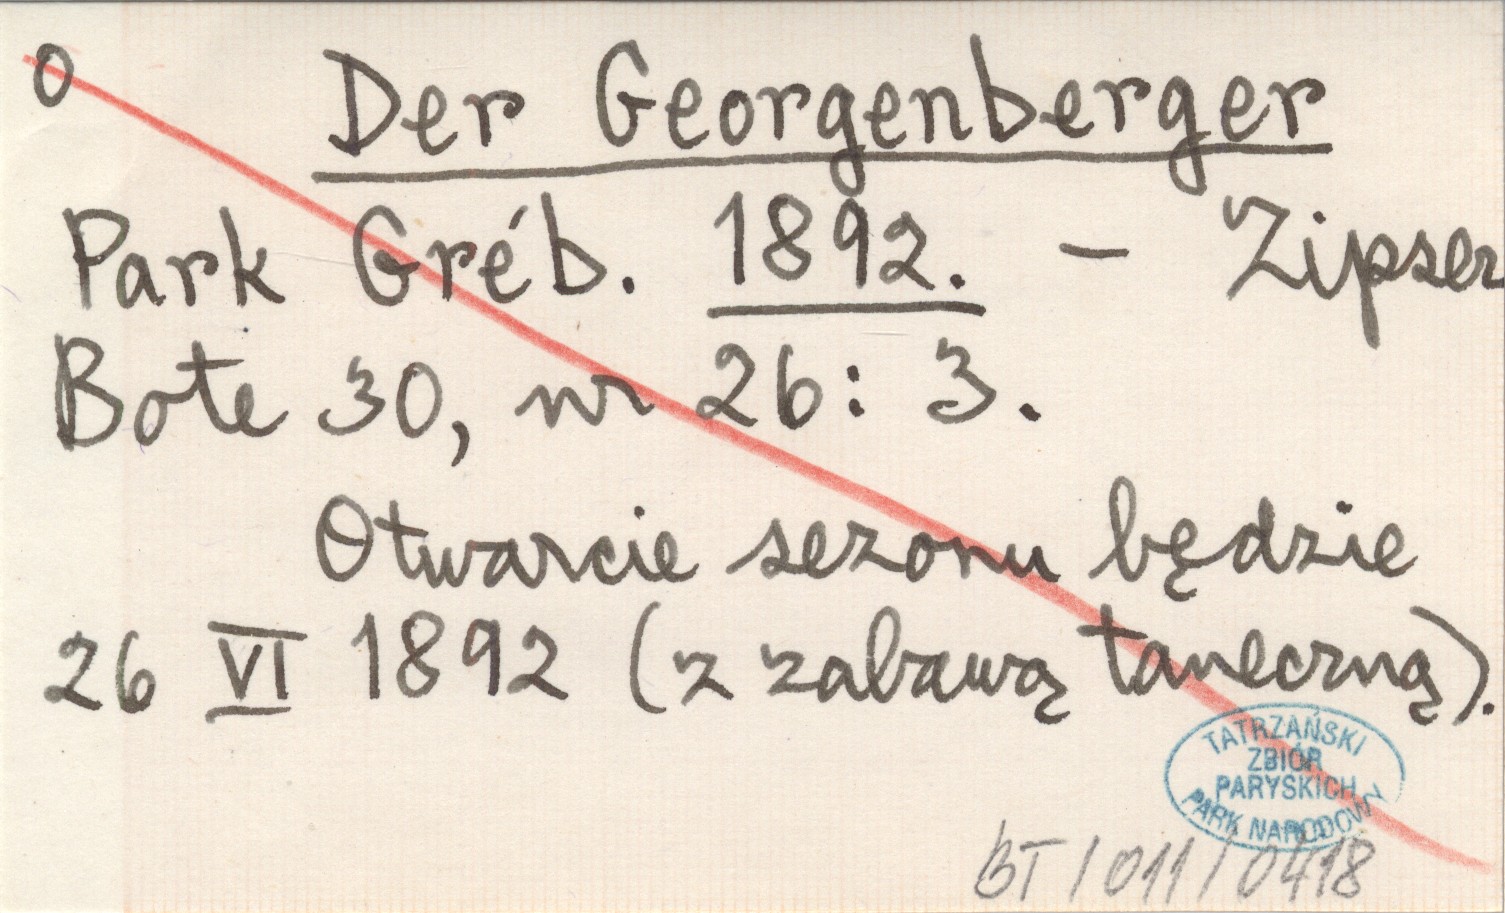 O Der Georgenberger
Park Gréb. 1892. – Zipser
Bote 30, nr 26: 3.
Otwarcie sezonu będzie
26 VI 1892 (z zabawą taneczną).
TATRZAŃSKI
ZBIÓR
PARYSKICH
PARK NARODOWY
BT/011/0418